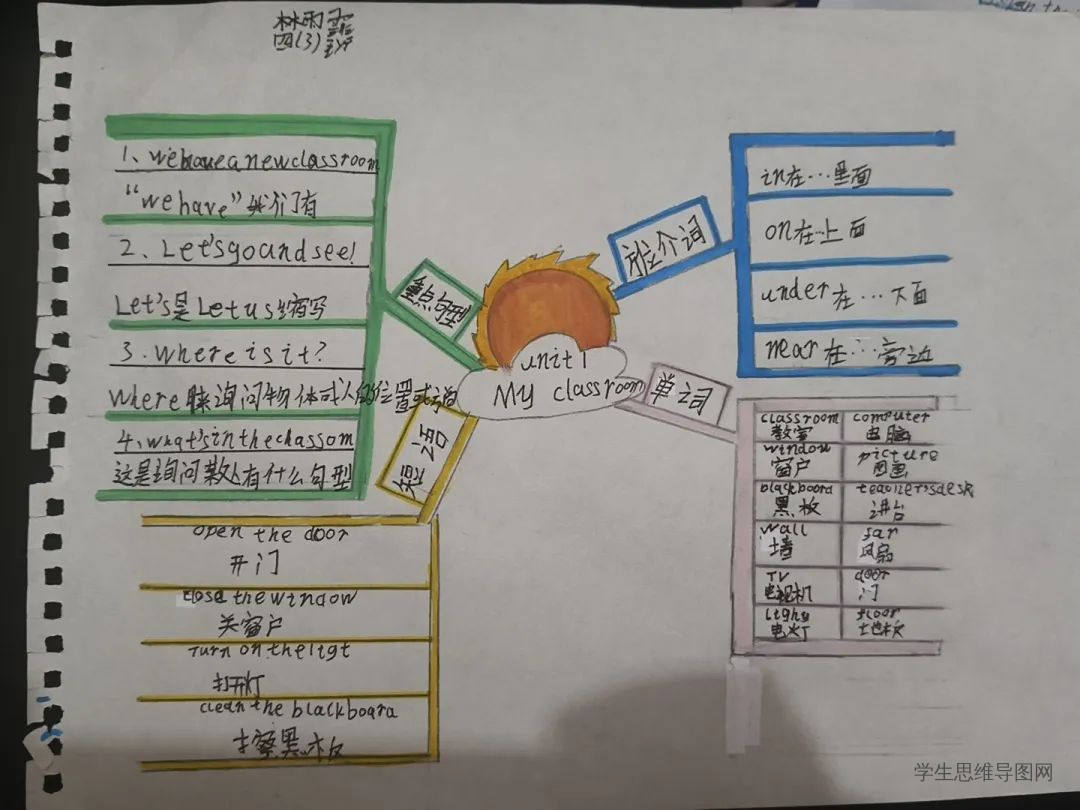 林雨霏
四(3)
重点句型
1、We have a new classroom
“we have”我们有
2、Let's go and see!
Let's是Let us 缩写
3、Where is it?
Where 询问物体或人的位置或
4、what's in the
这是询问某处有什么句型
unit 1
My classroom
介词
in在…里面
on在…上面
under在…下面
near在…旁边
单词
classroom computer
教室 电脑
window picture
窗户 图画
blackboard teacher'sdesk
黑板 讲台
wall fan
墙 风扇
TV door
电视机 门
light floor
电灯 地板
短语
open the door
开门
close the window
关窗户
Turn on the ligt
打开灯
clean the blackboara
擦黑板
学生思维导图网